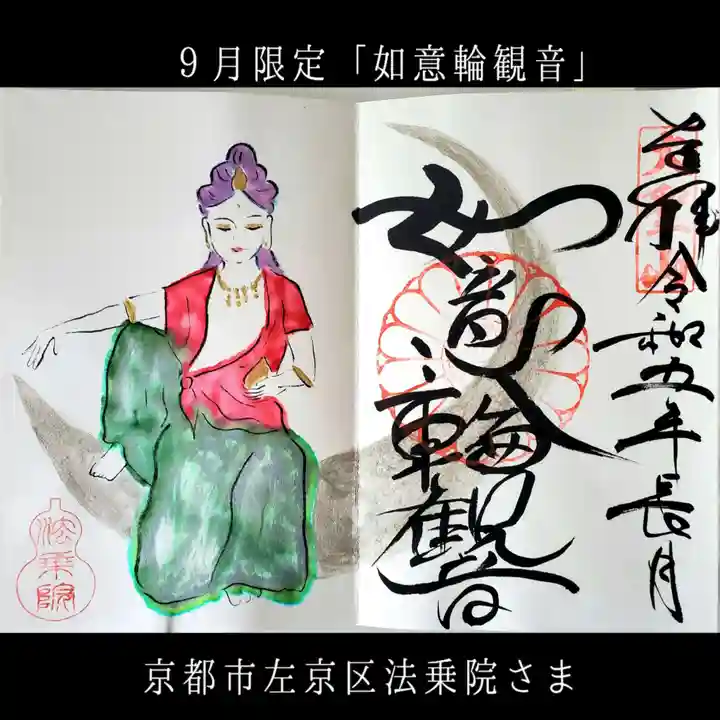 ９月限定「如意輪観音」
奉拝 令和五年長月
如意輪観音
法乗院
京都市左京区法乗院さま